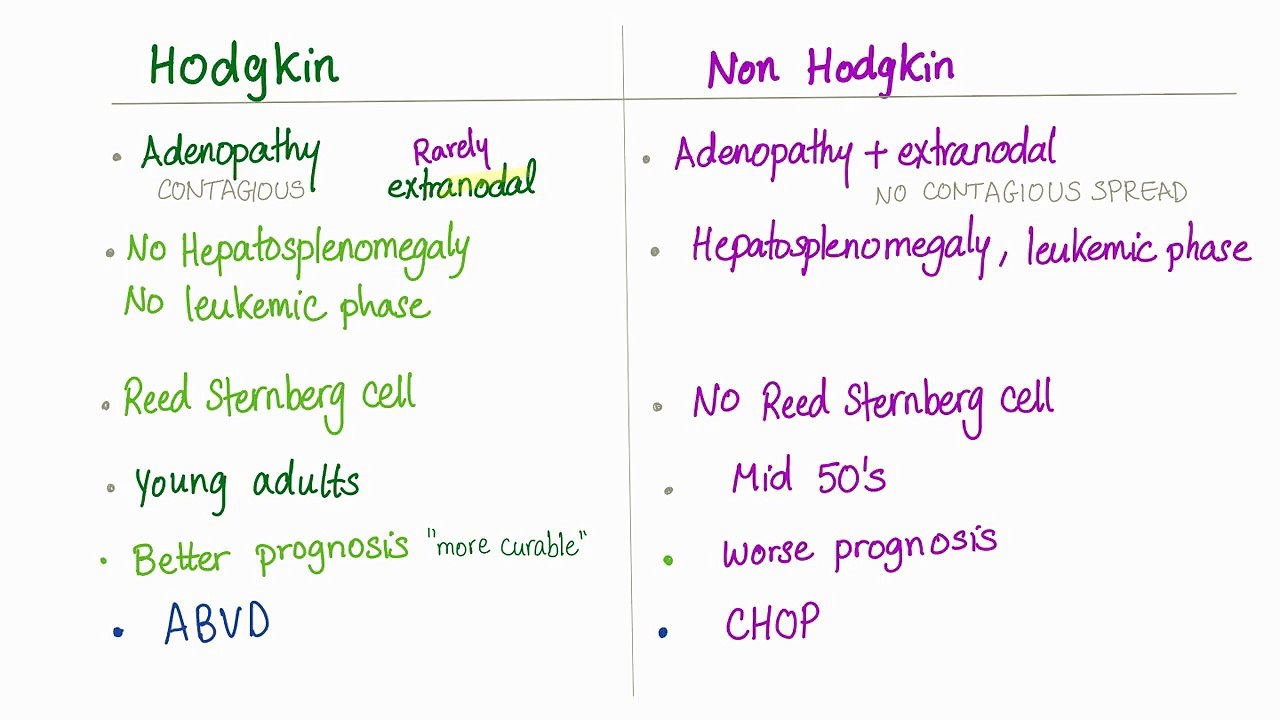 Hodgkin
Adenopathy
CONTAGIOUS
Rarely
extranodal
No Hepatosplenomegaly
No leukemic phase
Reed Sternberg cell
Young adults
Better prognosis "more curable"
ABVD
Non Hodgkin
Adenopathy + extranodal
NO CONTAGIOUS SPREAD
Hepatosplenomegaly, leukemic phase
No Reed Sternberg cell
Mid 50's
worse prognosis
CHOP